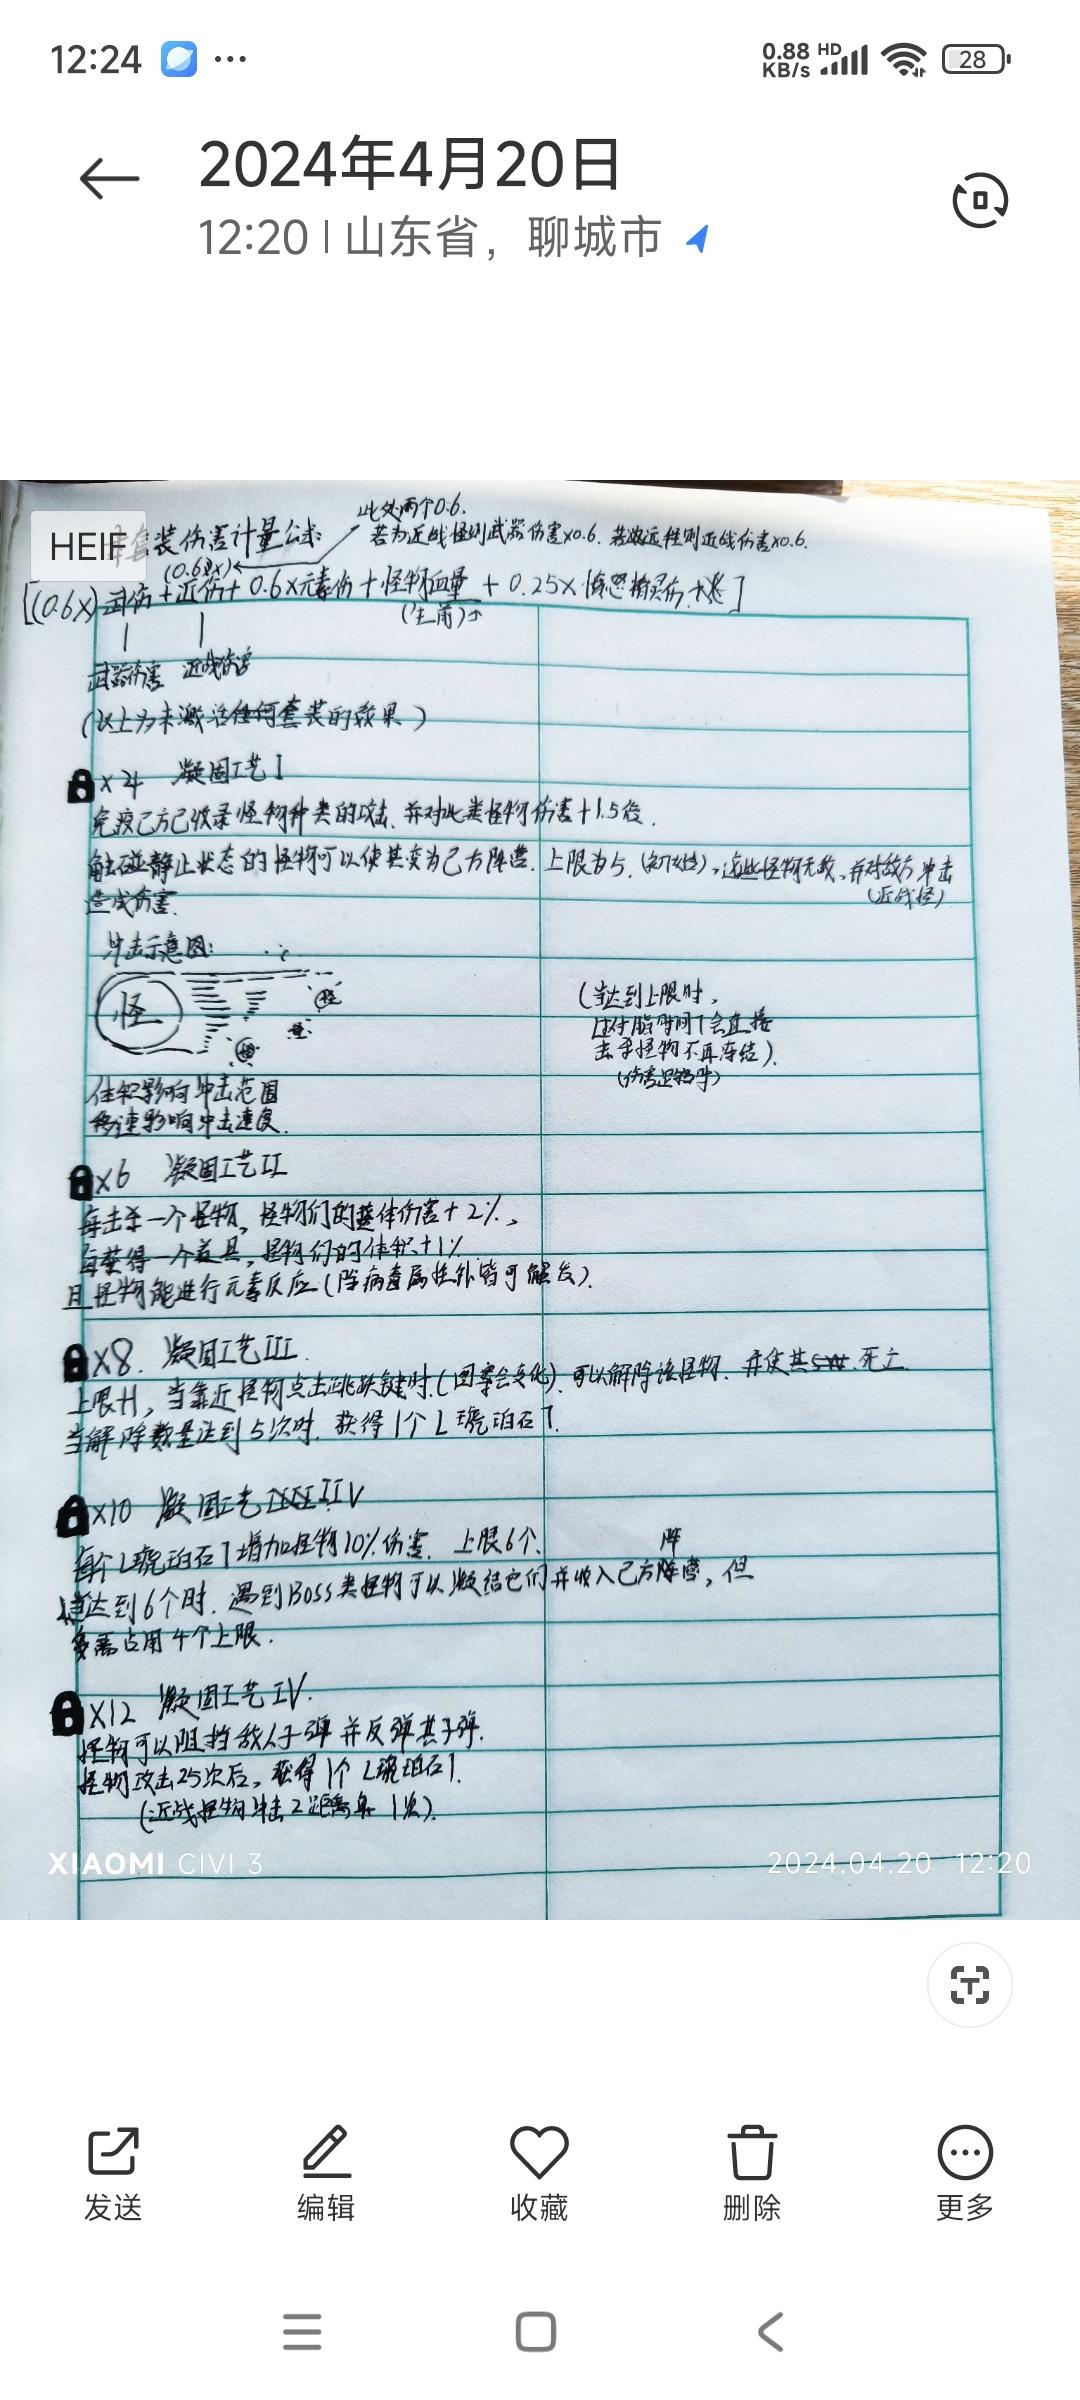 12:24
0.88 KB/s HD 28
2024年4月20日
12:20 | 山东省，聊城市
HEIF
此处两个0.6.
套装伤害计量公式:
若为近战怪则武器伤害x0.6. 若为远程则近战伤害x0.6.
[(0.6x)武伤+近伤+0.6x元素伤+怪物血量+0.25x
(生前)
武器伤害 近战伤害
(以上为未激活任何套装的效果)
x4 凝固工艺I
免疫己方已收录怪物种类的攻击、并对此类怪物伤害+1.5倍.
触碰静止状态的怪物可以使其变为己方阵营. 上限为5. 这些怪物无敌、并对敌方冲击
(近战怪)
造成伤害.
冲击示意图:
怪
(当达到上限时,
会直接
击杀怪物不再冻结).
体积影响冲击范围
移速影响冲击速度.
x6 凝固工艺II
每击杀一个怪物, 怪物们的整体伤害+2%、
每获得一个道具, 怪物们的体积+1%
且怪物能进行元素反应(除病毒属性外皆可触发).
x8. 凝固工艺III.
上限+1, 当靠近怪物点击跳跃键时.(图案会变化). 可以解除该怪物. 并使其死亡
当解除数量达到5次时. 获得1个L琥珀石7.
x10 凝固工艺
每个L琥珀石7增加怪物10%伤害. 上限6个.
阵
当达到6个时. 遇到Boss类怪物可以凝结它们并收入己方阵营, 但
需占用4个上限.
x12 凝固工艺IV.
怪物可以阻挡敌人子弹并反弹其子弹.
怪物攻击25次后, 获得1个L琥珀石7.
(近战怪物冲击2距离算1次).
XIAOMI CIVI 3
2024.04.20 12:20
发送 编辑 收藏 删除 更多